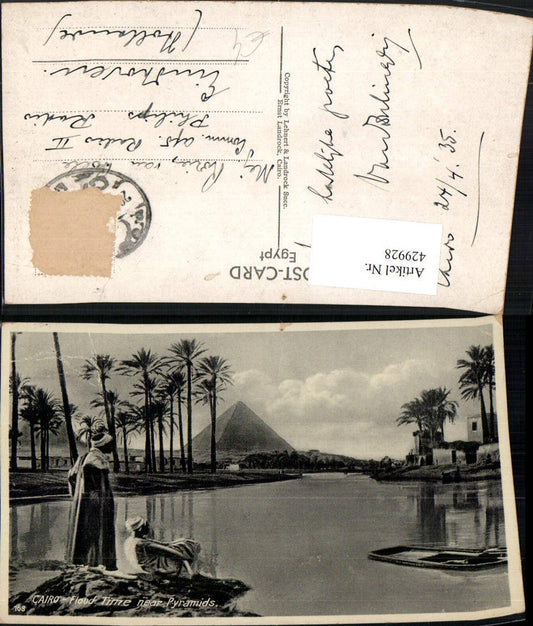 POST-CARD
Egypt
Artikel Nr.
429928
Cairo 24/4 '35.
hartelijke groeten,
Copyright by Lehnert & Landrock Succ.
Ernst Landrock, Cairo.
Mej.
Comm. afd. Radio II
Philips Radio
Eindhoven.
(Hollande)
CAIRO - Flood Time near Pyramids.
168